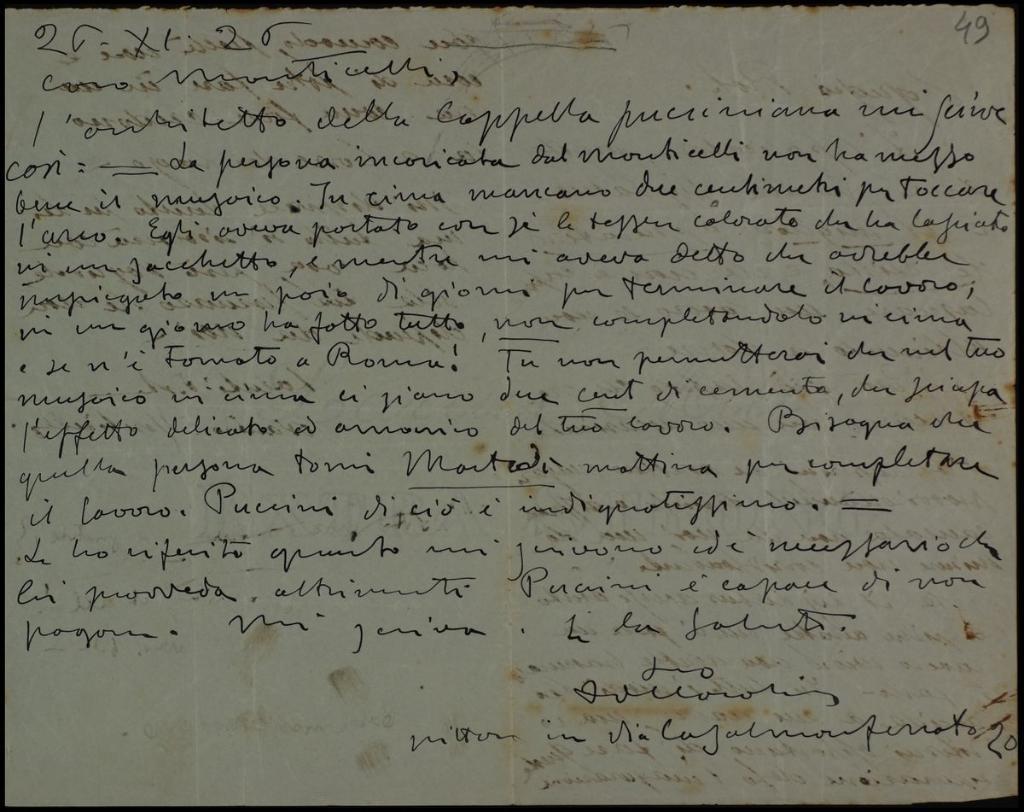 49
25 - XI - 25
Caro Monticelli,
l'architetto della Cappella pucciniana mi scrive
così: = La persona incaricata dal Monticelli non ha messo
bene il musaico. In cima mancano due centimetri per toccare
l'arco. Egli aveva portato con sè le tessere colorate che ha lasciato
in un sacchetto, e mentre mi aveva detto che avrebbe
impiegato un paio di giorni per terminare il lavoro,
in un giorno ha fatto tutto, non completandolo in cima
e se n'è tornato a Roma! Tu non permetterai che nel tuo
musaico in cima ci siano due cent di cemento, che sciupa
l'effetto delicato ed armonico del tuo lavoro. Bisogna che
quella persona torni Martedì mattina per completare
il lavoro. Puccini di ciò è indignatissimo. =
Le ho riferito quanto mi scrivono ed è necessario che
lei provveda. altrimenti Puccini è capace di non
pagare. Mi scriva. E la saluti.
Suo
pittore in via Casalmonferrato 20